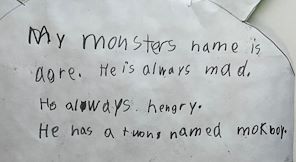 My monsters name is
agre. He is always mad.
He alowdys. hengry.
He has a twons named mokboy.